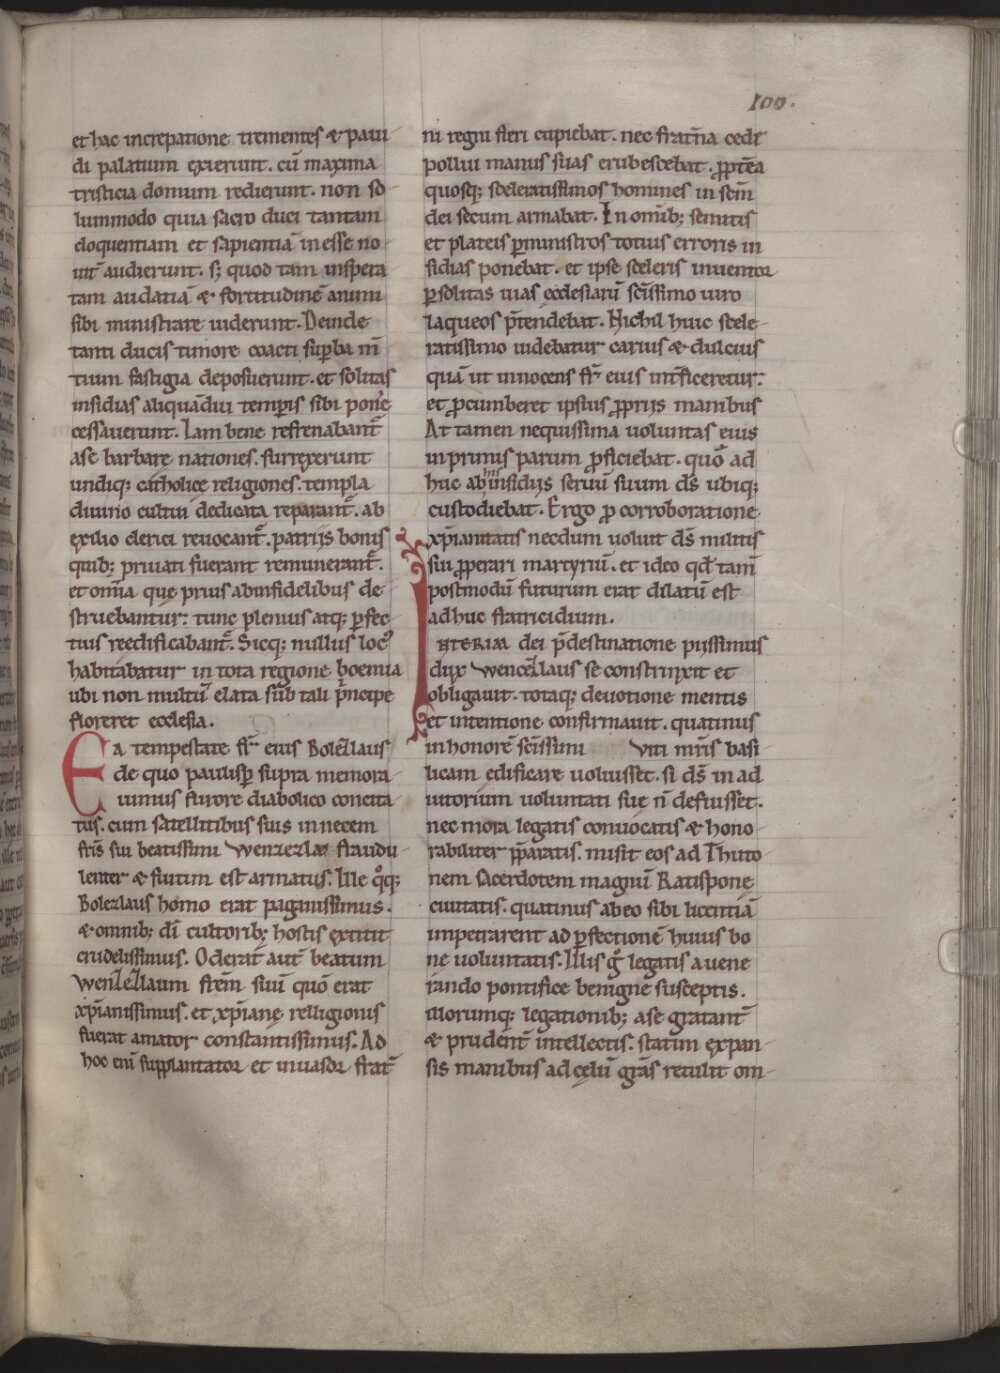 100.
et hac increpatione trementes & paui-
di palatium exierunt. cū maxima
tristicia domum redierunt. non so-
lummodo quia sacro duci tantam
eloquentiam et sapientiā inesse no-
uiť audierunt. s; quod tam inspera-
tam audatiā & fortitudinē animi
sibi ministrare uiderunt. Deinde
tanti ducis timore coacti supba m̄
tium fastigia deposuerunt. et solitas
insidias aliquādiu temp̄is sibi ponē
cessauerunt. Iam bene refrenabant̄
ase barbarę nationes. surrexerunt
undiq; catholicę religiones. templa
diuino cultui dedicata reparant̄. ab
exilio clerici reuocant̄. patrijs bonis
quib; priuati fuerant remunerant̄.
et om̄ia quę prius abinfidelibus de-
struebantur: tunc plenius atq; pfec-
tius reedificabant̄. Sicq; nullus loc'
habitabatur in tota regione boemia
ubi non multū elata sub tali p̄ncipe
floreret ecclesia.
Ea tempestate fr̄ eius Bolezlaus
de quo paulisp supra memora-
uimus furore diabolico concita-
tus. cum satellitibus suis innecem
fr̄is sui beatissimi Wenzezlai fraudu-
lenter & furtim est armatus. Ille q̊q;
Bolezlaus homo erat paganissimus.
& omnib; dī cultorib; hostis extitit
crudelissimus. Oderat aut̄ beatum
Wenzezlaum fr̄em suū quō erat
xp̄ianissimus. et xp̄ianę relligionis
fuerat amator constantissimus. Ad
hoc enī supplantator et inuasor frat̄-
ni regni fieri cupiebat. nec frat̄na cede
pollui manus suas erubescebat. ppt̄ea
quosq; sceleratissimos homines in sem̄
dei secum armabat. In om̄ib; semitis
et plateis pministros totius erroris in
sidias ponebat. et ipse sceleris inuentor
psolitas uias ecclesiarū sc̄issimo uiro
laqueos p̄tendebat. Nichil huic scele-
ratissimo uidebatur carius & dulcius
quā ut innocens fr̄ eius int̄ficeretur.
et pcumberet ipsius pprijs manibus
At tamen nequissima uoluntas eius
inprimis parum pficiebat. quō ad
huc ab insidijs seruū suum ds̄ ubiq;
custodiebat. Ergo p corroboratione
xp̄ianitatis necdum uoluit ds̄ militis
sui pperari martyriū. et ideo qd̄ tam̄
postmodū futurum erat dilatū est
adhuc fratricidium.
Interim dei p̄destinatione pijssimus
dux Wencezlaus se construxit et
obligauit. totaq; deuotione mentis
et intentione confirmauit. quatinus
inhonorē sc̄issimi Viti mr̄is basi-
licam edificare uoluisset. si ds̄ in ad
iutorium uoluntati suę n̄ defuisset.
nec mora legatis conuocatis & hono-
rabiliter p̄paratis. misit eos ad Thuto-
nem sacerdotem magnū Ratisponę
ciuitatis. quatinus abeo sibi licentiā
impetrarent ad pfectionē huius bo
nę uoluntatis. Illis g̊ legatis auene
rando pontifice benigne susceptis.
illorumq; legationib; ase gratant̄
& prudent̄ intellectis. statim expan-
sis manibus ad cęlū gr̄as retulit om-